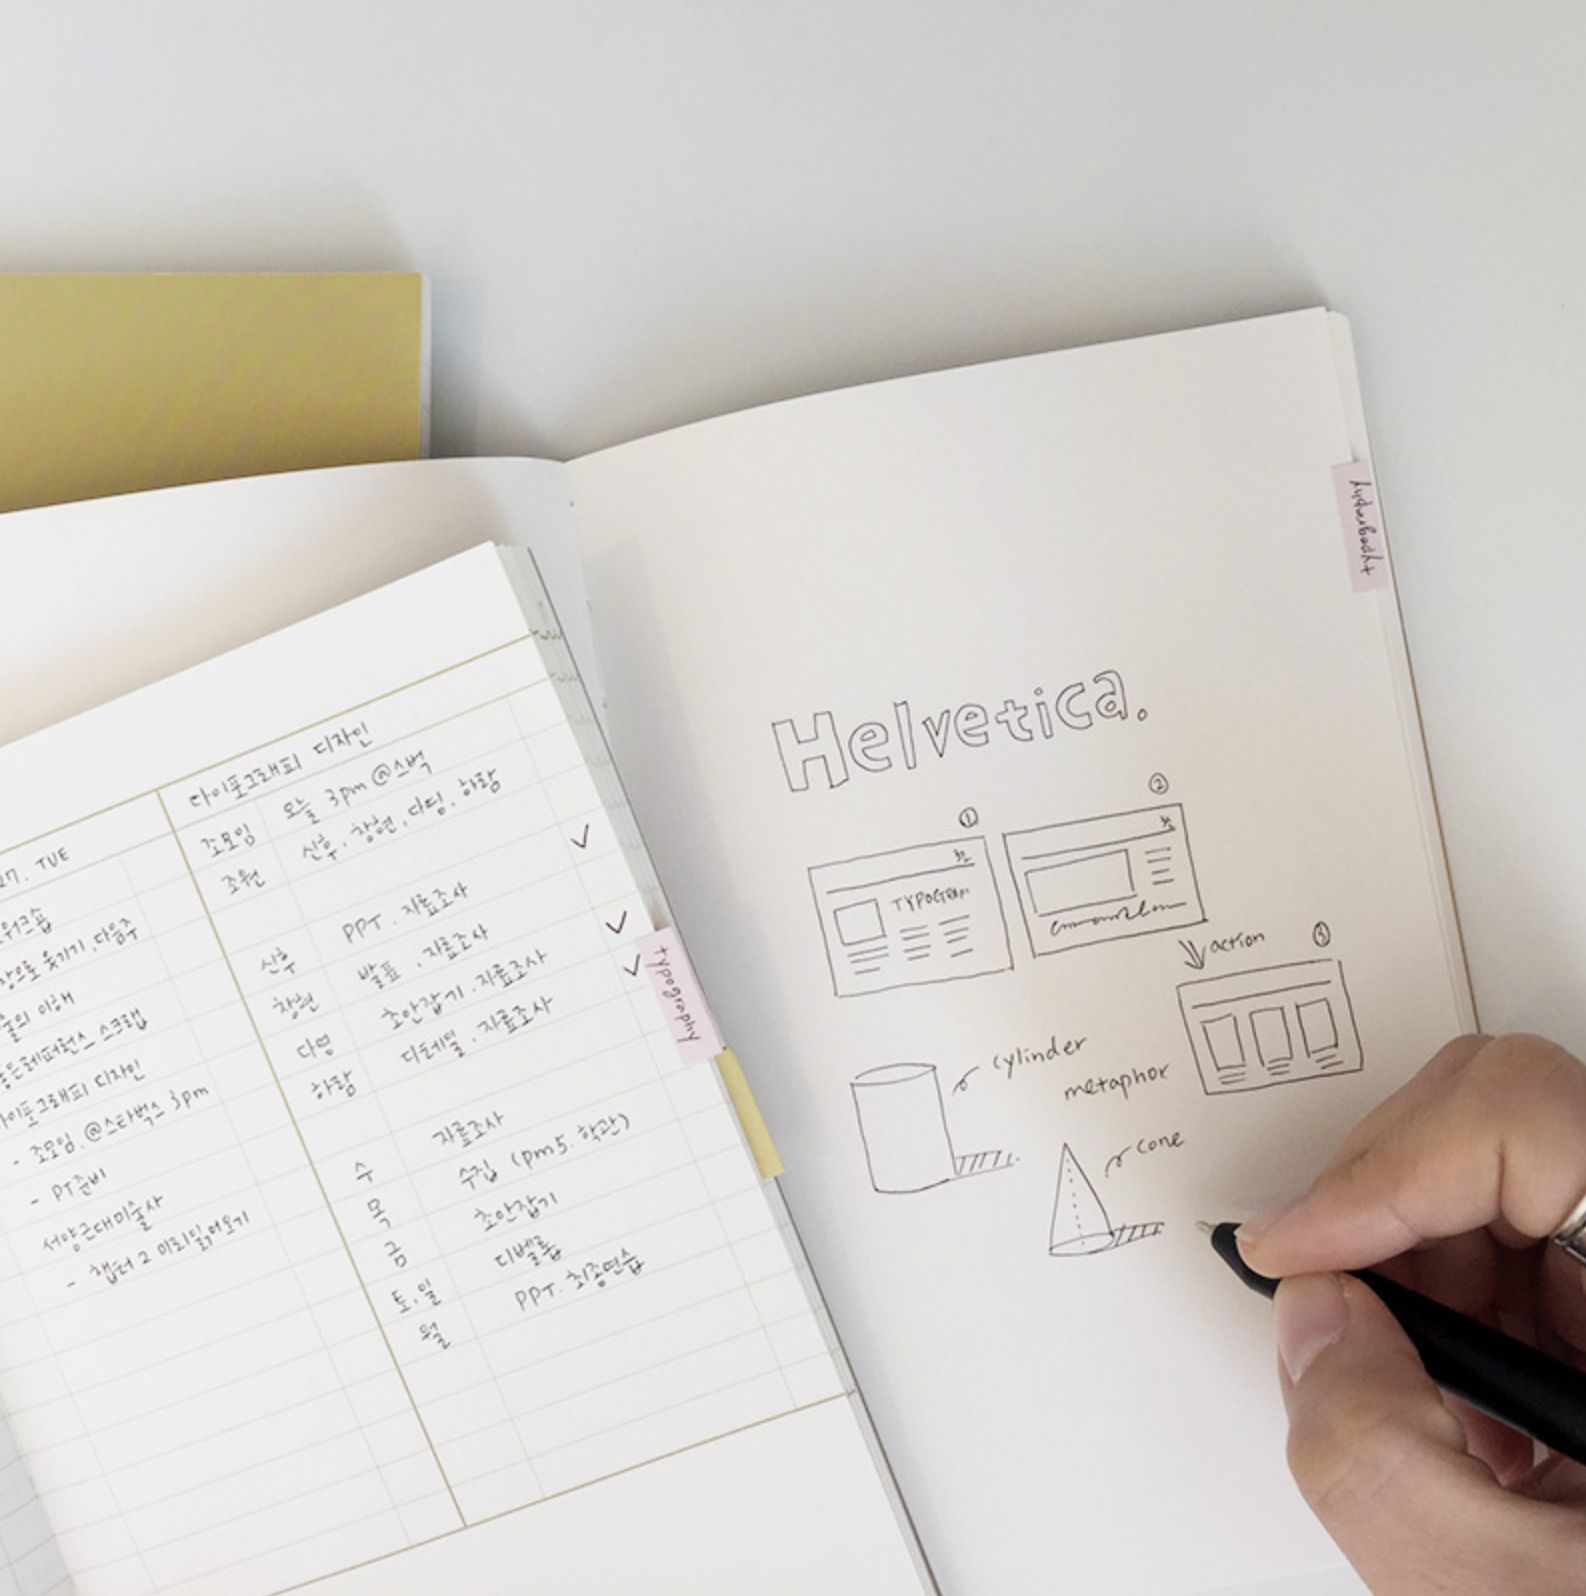 27. TUE
워크숍
장으로 옮기기. 다음주
술의 이해
좋은레퍼런스 스크랩
타이포그래피 디자인
- 조모임. @스타벅스 3pm
- PT준비
서양근대미술사
- 챕터 2 미리읽어오기
타이포그래피 디자인
조모임 오늘 3pm @스벅
조원 신후. 창현. 다영. 하람
신후 PPT. 자료조사
창현 발표. 자료조사
다영 초안잡기. 자료조사
하람 디테일. 자료조사
수 자료조사
목 수집 (pm5. 학관)
금 초안잡기
토.일 디벨롭
월 PPT. 최종연습
typography
typography
Helvetica.
①
②
TYPOGRAM
action
③
cylinder
metaphor
cone